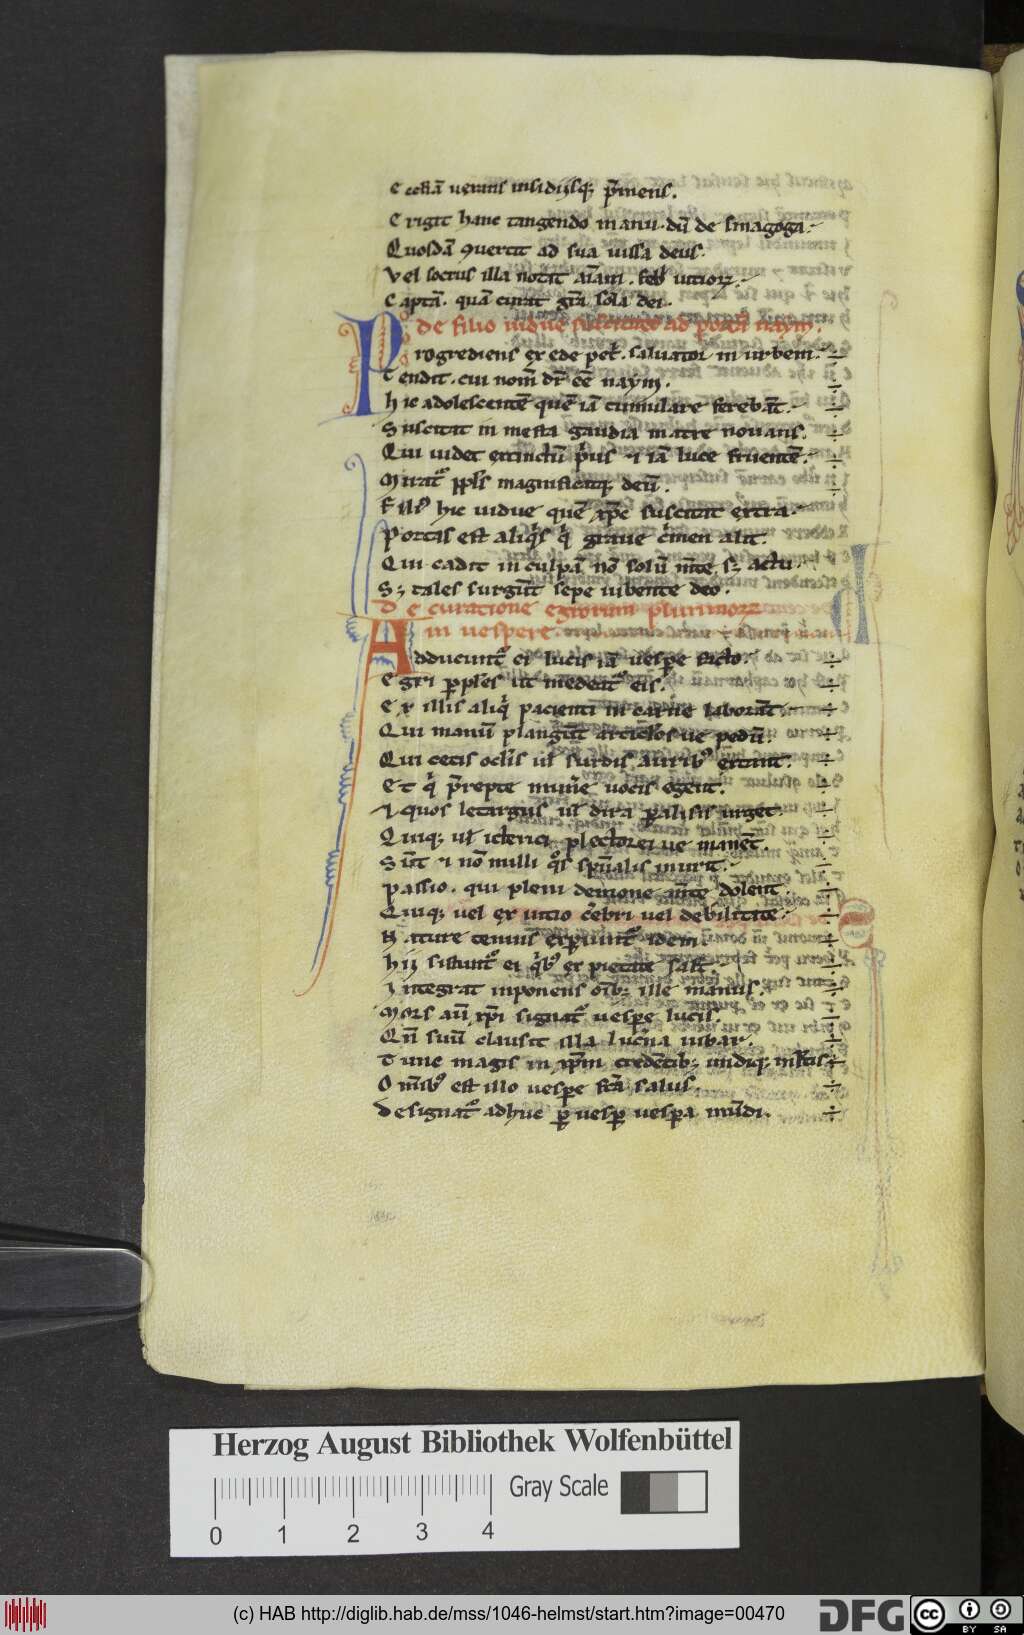 E rigit hanc tangendo manu. dũ de sinagoga.
Quosdã ꝯuertit ad sua uissa deus.
Vel socrus illa notit aĩam. feb' uitioꝝ.
C aptã. quã curat gr̃a sola dei.
de filio uidue suscitato ad portã naym.
P rogrediens ex ede pet'. saluator in urbem.
T endit. cui nom̃ dr̃ cẽ naym.
h ic adolescentẽ quẽ iã tumulare ferebãt.
S uscitat in mesta gaudia matre nouans.
Qui uidet extinctũ p'us ⁊ iã luce fruentẽ.
M irat' ppl's magnificatq; deũ.
F ili' hic uidue quẽ xp̃c suscitat extra.
P ortas est aliq's q' graue c'men alit.
Qui cadit in culpã nõ solũ m̃te s; actu.
S; tales surgũt sepe iubente deo.
d e curatione egrorum plurimoꝝ
in uespere.
A dducunt' ei lucis iã uesꝑe facto.
E gri ꝑples ut medeat' eis.
E x illis aliq' pacienti in carne laborãt.
Qui manuũ plangũt articlos ue pedũ.
Qui cecis oclis ul' surdis aurib' errant.
E t q' p̃repte mun'e uocis egent.
⁊ quos letargus ul' dira ꝑalisis urget.
Quiq; ul' icterici plectorei ue manẽt.
S ũt ⁊ nõ nulli q°s sp̃ualis inurit.
P assio. qui pleni demone m̃te dolent.
Quiq; uel ex uitio c'ebri uel debilitate.
N ature tenuis expiunt' idem.
h ij sistunt' ei q'b' ex pietate salt'.
I ntegrat inponens oĩb; ille manus.
M ors aũ xp̃i signat' uesꝑe lucis.
Qñ suũ clausit illa luc'na iubar.
T unc magis in xp̃m credẽtib; undiq; ml'tis
O m̃ib' est illo uesꝑe fc̃a salus.
D esignat' adhuc ꝑ uesꝑ uespa mũdi.
Herzog August Bibliothek Wolfenbüttel
Gray Scale
0 1 2 3 4
(c) HAB http://diglib.hab.de/mss/1046-helmst/start.htm?image=00470
DFG
cc BY SA